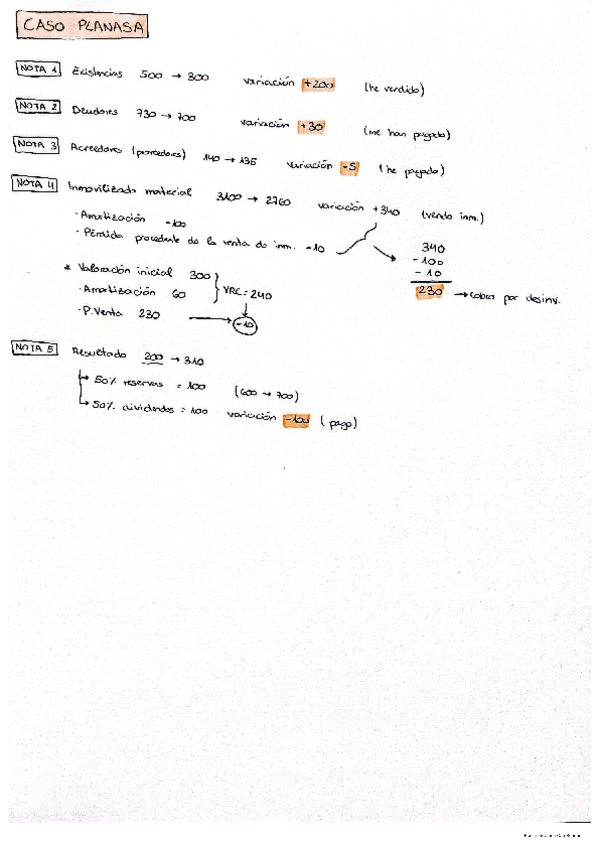 CASO PLANASA
NOTA 1 Existencias 500 → 300 variación +200 (he vendido)
NOTA 2 Deudores 730 → 700 variación +30 (me han pagado)
NOTA 3 Acreedores (proveedores) 140 → 135 variación -5 (he pagado)
NOTA 4 Inmovilizado material 3100 → 2760 variación +340 (vendo inm.)
· Amortización -100
· Pérdida procedente de la venta de inm. -10
340
-100
-10
230 → cobro por desinv.
* Valoración inicial 300
· Amortización 60 VRC = 240
· P. Venta 230 → -10
NOTA 5 Resultado 200 → 310
↳ 50% reservas = 100 (600 → 700)
↳ 50% dividendos = 100 variación -100 (pago)